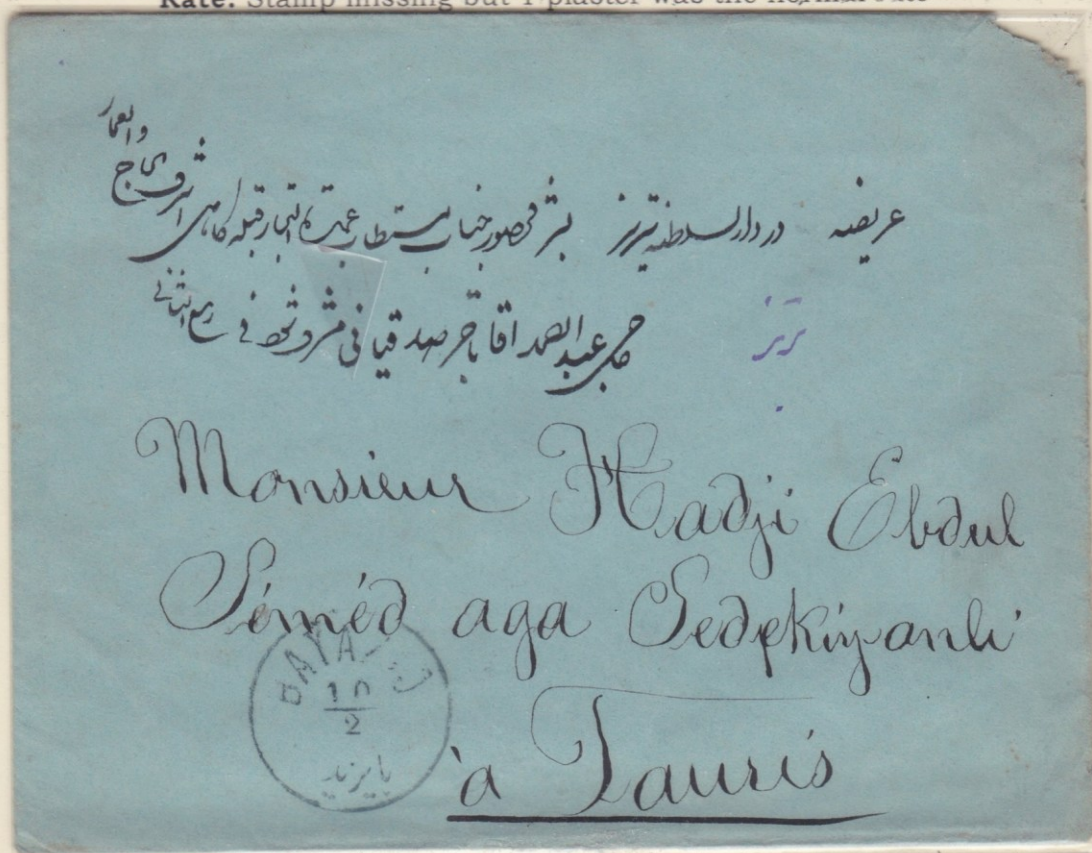 Rate: Stamp missing but 1 piaster was the normal rate
والعمار
الحاج
عریضه در دارالسلطنه تبریز بشرف حضور جناب مستطاب عمدة التجار قبله کاهی اشرف
حاجی عبدالصمد اقا تاجر صدقیانی مشرف فی ربیع الثانی
تبریز
Monsieur Hadji Ebdul
Séméd aga Sedekiyanli
à Tauris
BAYAZID
10
2
بایزید